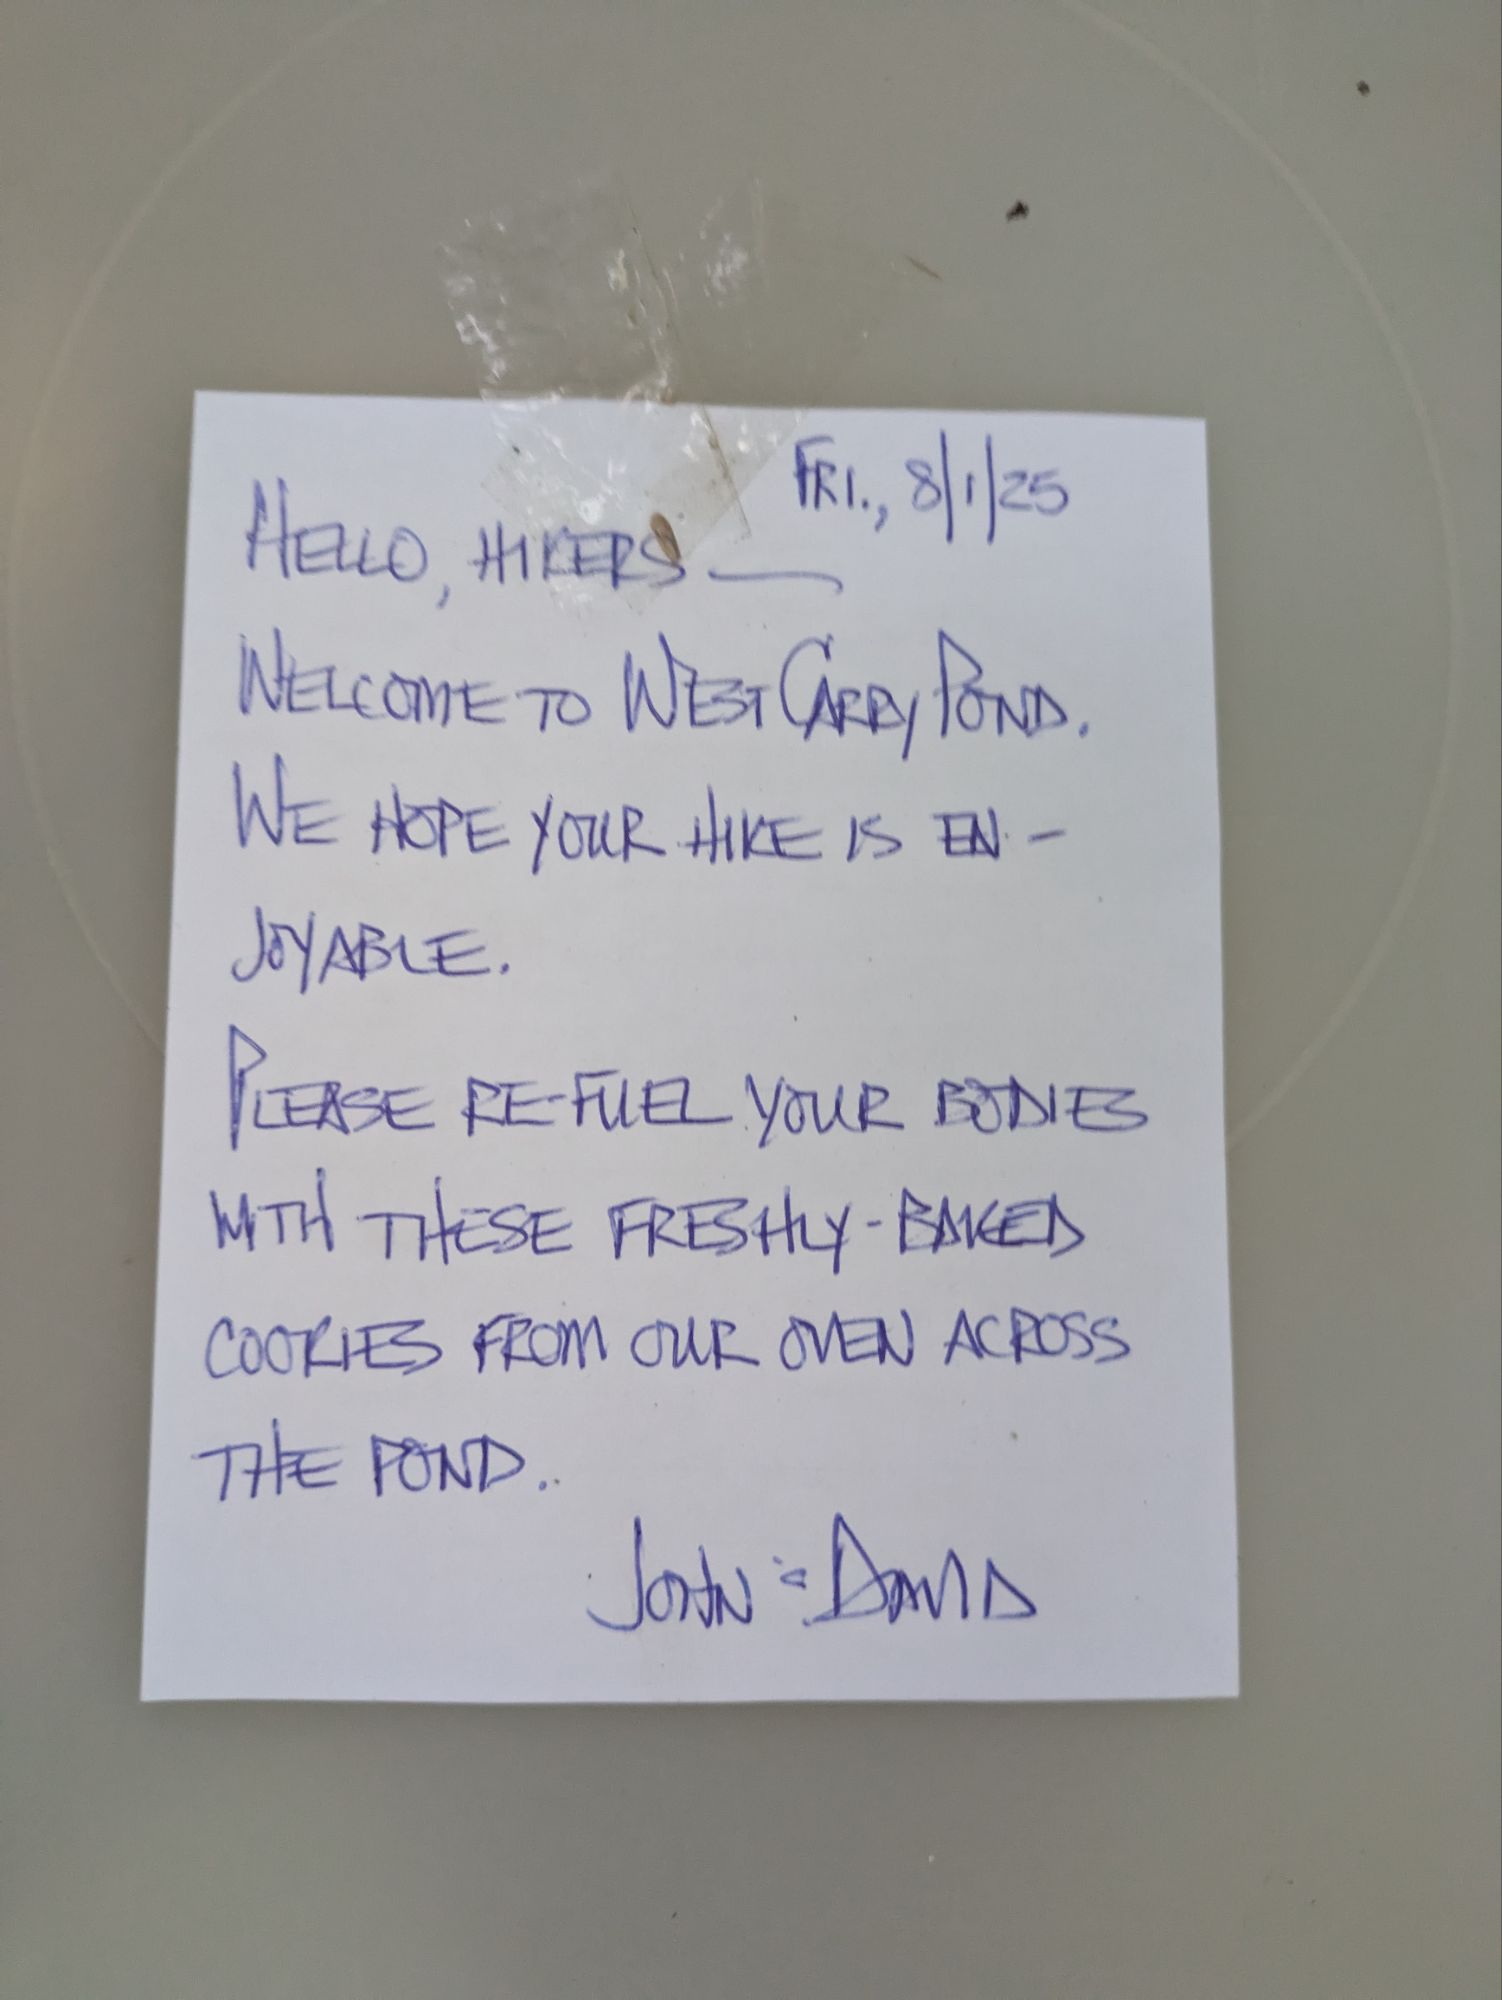 FRI., 8/1/25
HELLO, HIKERS —
WELCOME TO WEST CARRY POND.
WE HOPE YOUR HIKE IS EN-
JOYABLE.
PLEASE RE-FUEL YOUR BODIES
WITH THESE FRESHLY-BAKED
COOKIES FROM OUR OVEN ACROSS
THE POND.
JOHN & DAVID